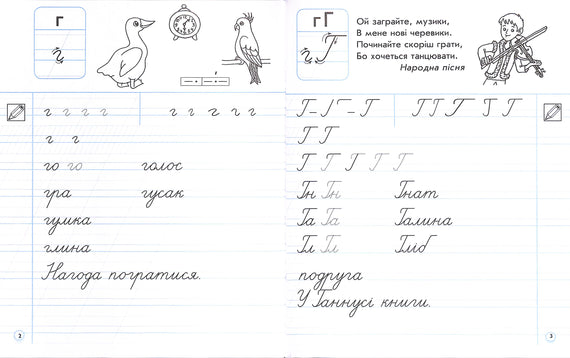 г
г
г г г г г г г г г
г г
го го голос
гра гусак
гумка
глина
Нагода погратися.
2
гГ
г Г
Ой заграйте, музики,
В мене нові черевики.
Починайте скоріш грати,
Бо хочеться танцювати.
Народна пісня
Г Г Г Г Г
Г Г
Г Г Г Г Г
Гн Гн Гнат
Га Га Галина
Гл Гл Гліб
подруга
У Ганнусі книги.
3